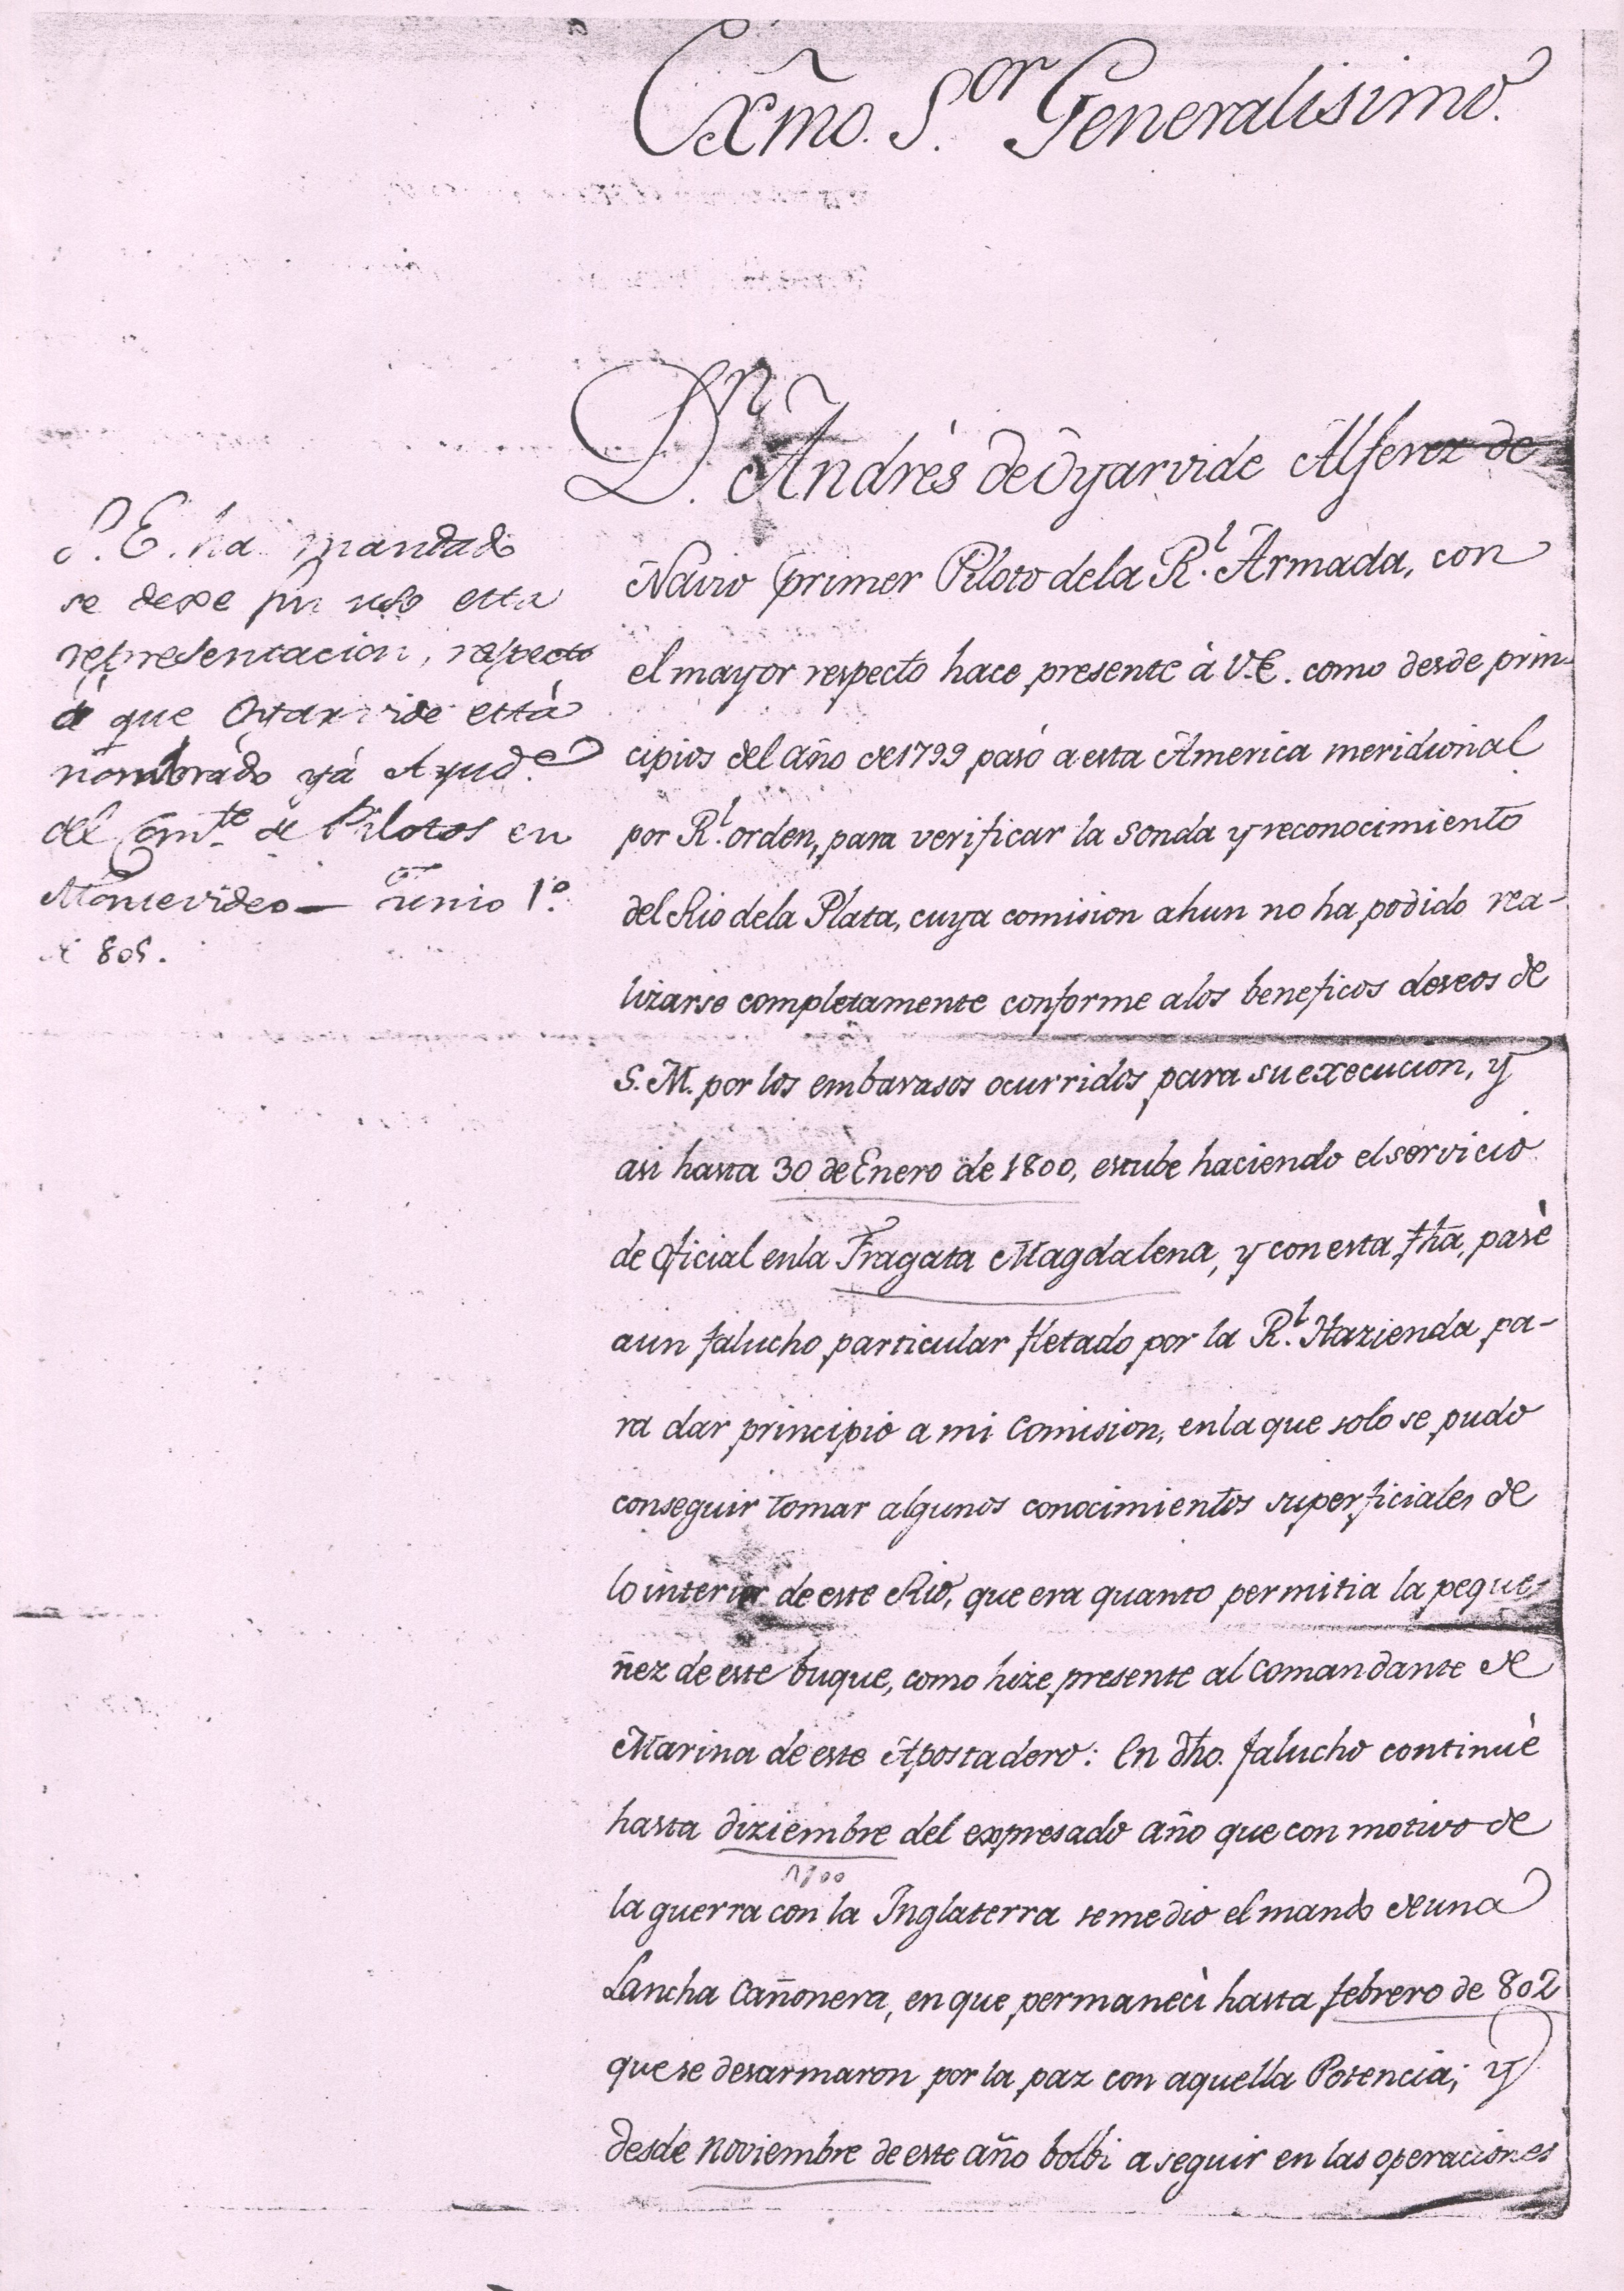 Exm̃o. S.or Generalisimo.
D.n Andrès de Oyarvide Alferez de
Navio primer Piloto de la R.l Armada, con
el mayor respecto hace presente à V.E. como desde prin-
cipios del año de 1799 pasó a esta America meridional
por R.l orden, para verificar la sonda y reconocimiento
del Rio de la Plata, cuya comision ahun no ha podido rea-
lizarse completamente conforme a los beneficos deseos de
S.M. por los embarasos ocurridos para su execucion, y
asi hasta 30 de Enero de 1800, estube haciendo el servicio
de oficial en la Fragata Magdalena, y con esta fh̃a, pasè
a un falucho particular fletado por la R.l Hazienda pa-
ra dar principio a mi Comision, en la que solo se pudo
conseguir tomar algunos conocimientos superficiales de
lo interior de este Rio, que era quanto permitia la peque-
ñez de este buque, como hize presente al Comandante de
Marina de este Apostadero: En dh̃o. falucho continuè
hasta diziembre del expresado año que con motivo de
1800
la guerra con la Inglaterra se me dio el mando de una
Lancha Cañonera, en que permanecì hasta febrero de 802
que se desarmaron por la paz con aquella Potencia; y
desde noviembre de este año bolbi a seguir en las operaciones
S.E. ha mandado
se dexe sin uso esta
representacion, respecto
à que Oyarvide està
nombrado yà Ayud.e
del Com.te de Pilotos en
Montevideo — Junio 1.º
de 805.